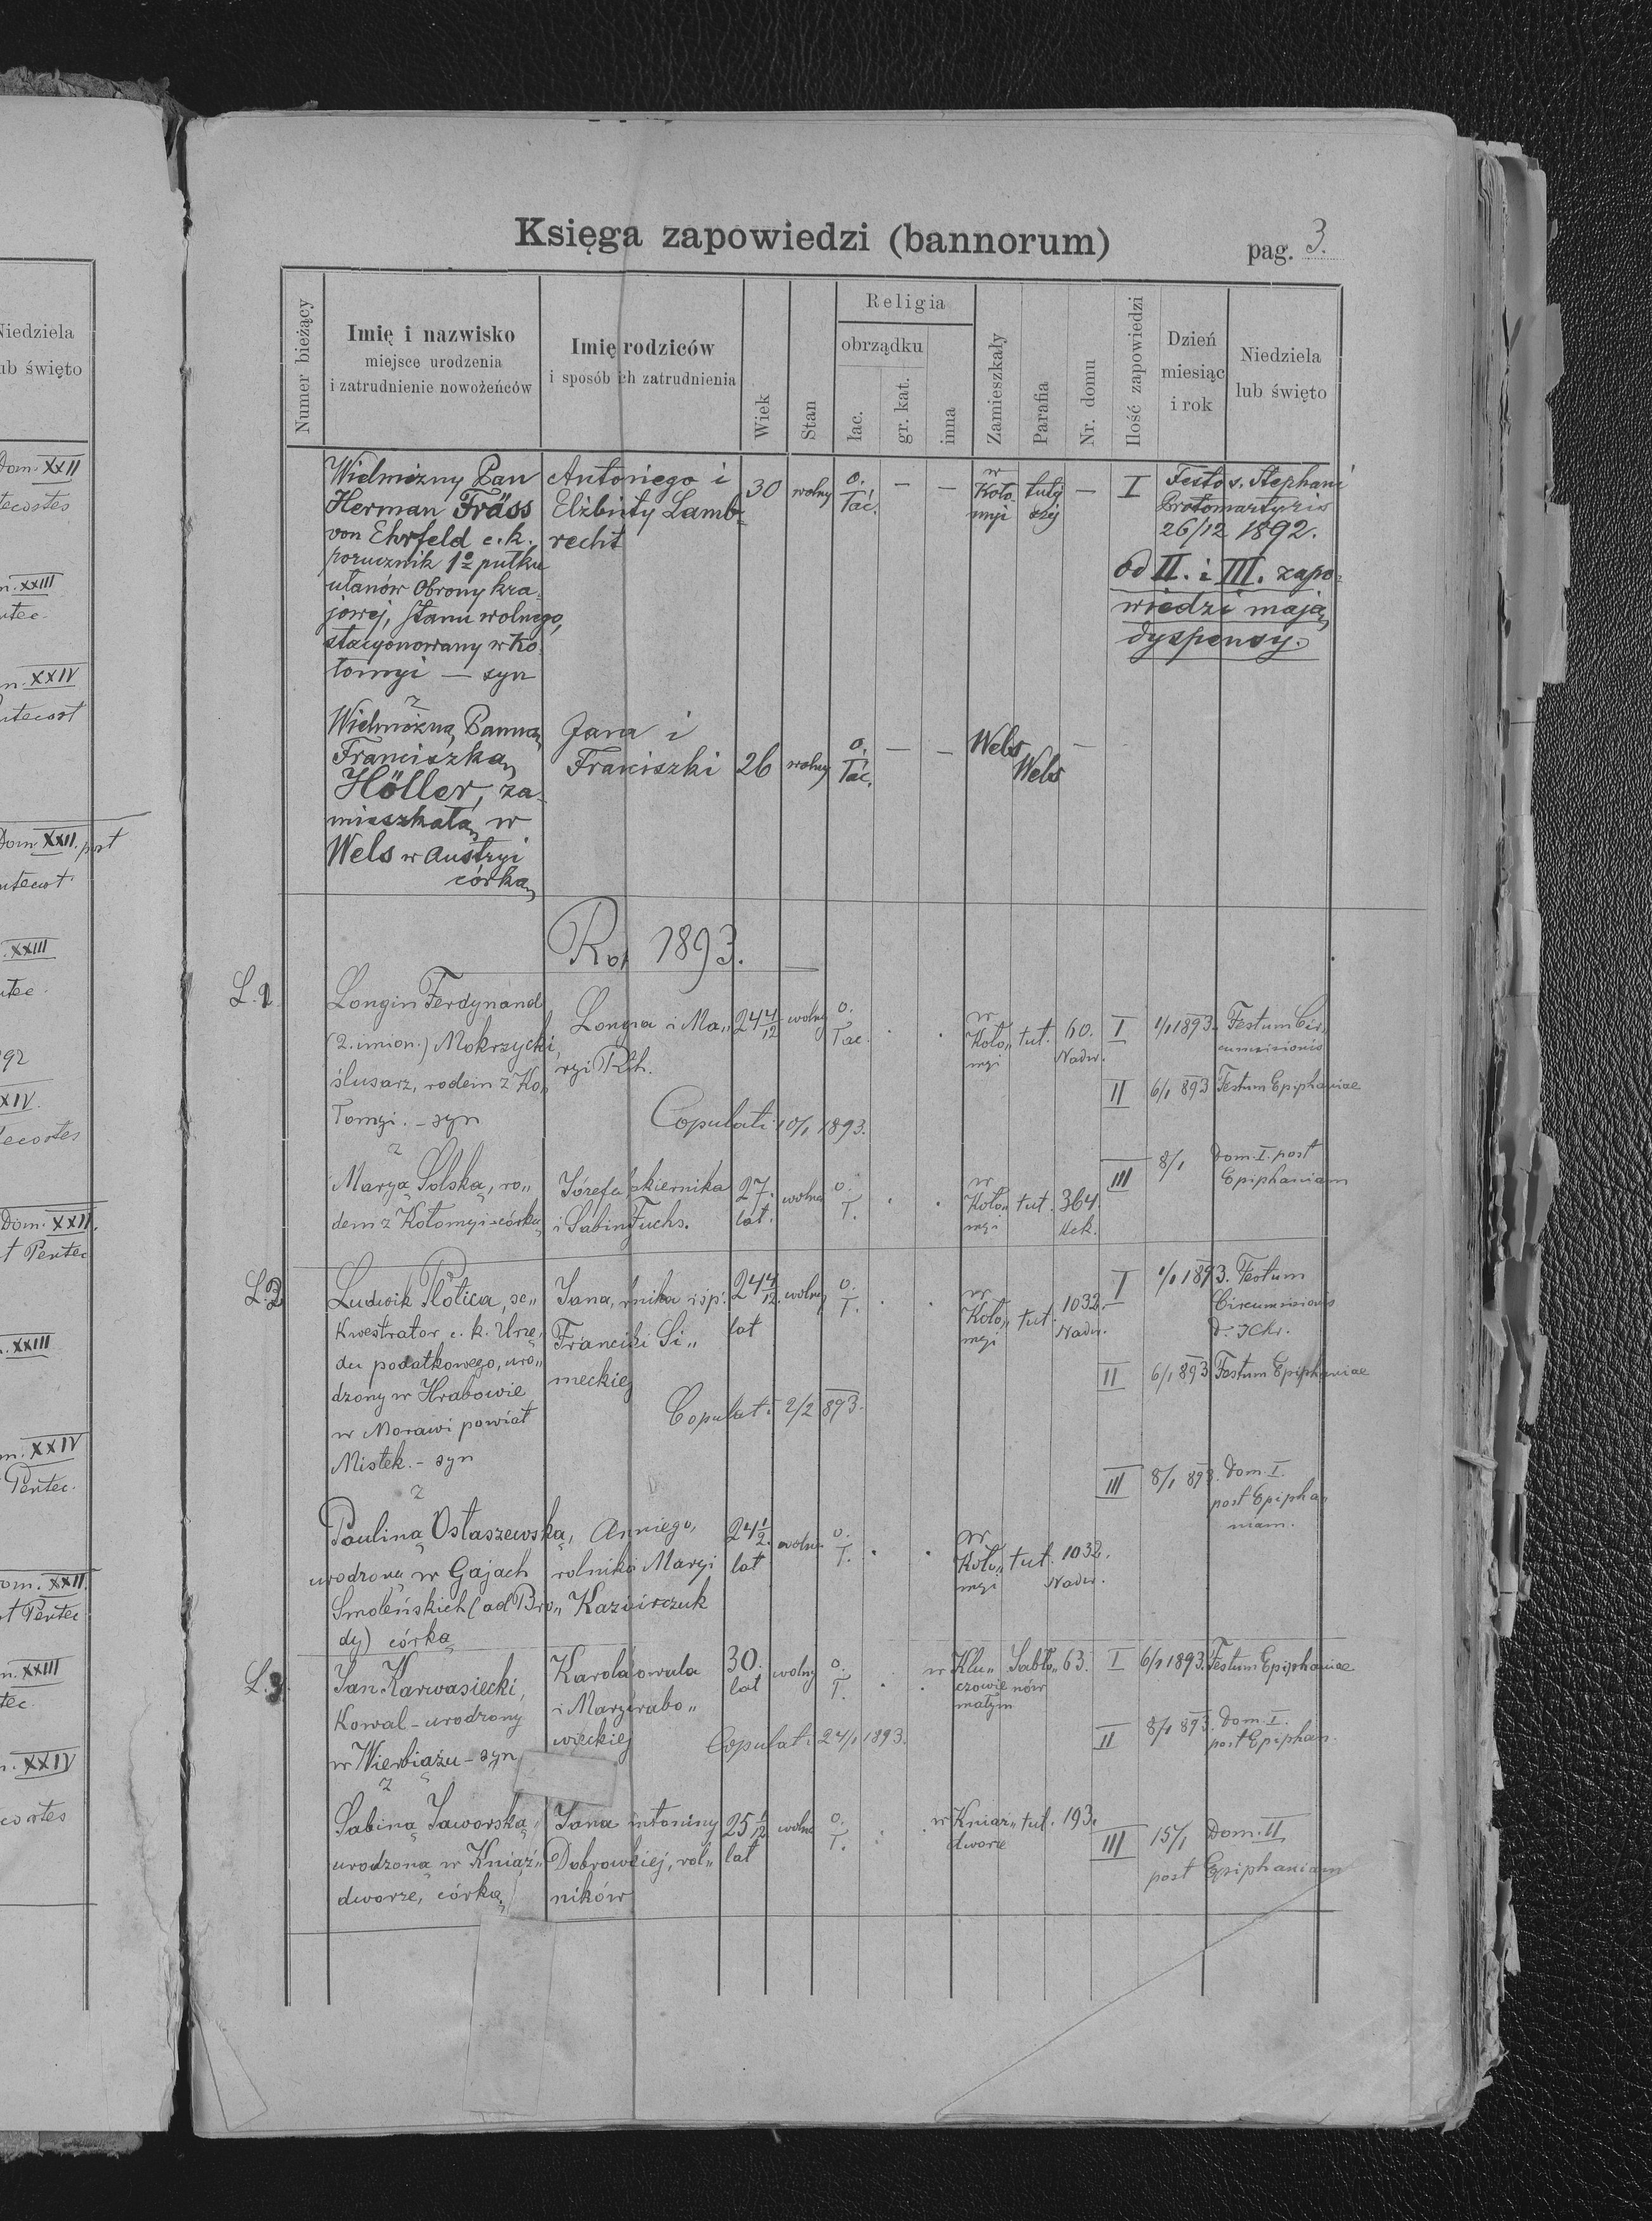 Księga zapowiedzi (bannorum)
pag. 3.
Numer bieżący
Imię i nazwisko
miejsce urodzenia
i zatrudnienie nowożeńców
Imię rodziców
i sposób ich zatrudnienia
Wiek
Stan
Religia
obrządku
łac.
gr. kat.
inna
Zamieszkały
Parafia
Nr. domu
Ilość zapowiedzi
Dzień
miesiąc
i rok
Niedziela
lub święto
Wielmożny Pan
Herman Fräss
von Ehrfeld c. k.
porucznik 1o pułku
ułanów Obrony kra-
jowej, stanu wolnego,
stacyonowany w Ko
łomyi — syn
Antoniego i
Elżbiety Lamb-
recht
30
wolny
o.
łac.
—
—
w
Koło-
myi
tutej
szej
—
I
Festo s. Stephani
Protomartyris
26/12 1892.
od II. i III. zapo-
wiedzi mają
dyspensy.
z
Wielmożną Panną
Franciszką
Höller, za-
mieszkałą w
Wels w Austryi
córką
Jana i
Franciszki
26
wolny
o.
łac.
—
—
Wels
Wels
—
Rok 1893.
L. 1.
Longin Ferdynand
(2. imion.) Mokrzycki,
ślusarz, rodem z Ko„
łomyi. - syn
Longina i Ma„
ryi Rth.
24 4/12
wolny
o.
łac.
w
Koło„
myi
tut.
60.
Nadw.
I
1/1 1893.
Festum Cir„
cumcisionis
II
6/1 893
Festum Epiphaniae
Copulati 10/1 1893.
III
8/1
Dom. I. post
Epiphaniam
z
Maryą Solską, ro„
dem z Kołomyi - córką
Józefa skiernika
i Sabiny Fuchs.
27.
lat.
wolna
o.
ł.
w
Koło„
myi
tut.
364.
L. 2
Ludwik Plotica, se„
kwestrator c. k. Urzę„
du podatkowego, uro„
dzony w Hrabowie
w Morawi powiat
Mistek. - syn
Jana, rnika i śp.
Francizki Si„
meckiej
24 4/12.
lat
wolny
o.
ł.
w
Koło„
myi
tut.
1032.
Nadw.
I
1/1 1893.
Festum
Circumcisionis
D. JChr.
II
6/1 893
Festum Epiphaniae
Copulati 2/2 893.
III
8/1 893.
Dom. I.
post Epipha
niam.
z
Pauliną Ostaszewską,
urodzoną w Gajach
Smoleńskich (ad Bro„
dy) córką
rolnika Maryi
24 1/2.
lat
wolna
o.
ł.
w
Koło„
myi
tut.
1032.
Nadw.
L. 3.
Jan Karwasiecki,
kowal - urodzony
w Wierbiążu - syn
Karola owala
i Maryi rabo„
wieckiej
30.
lat
wolny
o.
ł.
w Klu„
czowie
małym
Jabło„
nów
63.
I
6/1 1893.
Festum Epiphaniae
Copulati 24/1 1893.
II
8/1 893.
Dom. I.
post Epiphan.
z
Sabiną Jaworską,
urodzoną w Kniaź„
dworze, córką
Jana i ntoniny
Dobrow iej, rol„
ników
25 1/12
lat
wolna
o.
ł.
w Kniaź„
dworze
tut.
193.
III
15/1
Dom. II
post Epiphaniam
Niedziela
ub święto
Dom. XXII
tecostes
n. XXIII
n. XXIV
Dom XXII. post
. XXIII
92
XIV.
tecostes
Dom. XXII.
t Pentec
. XXIII
m. XXIV
Pentec.
om. XXII.
t Pentec
n. XXIII
tec.
. XXIV
costes